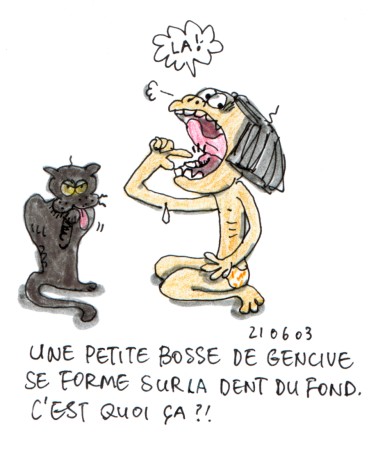 LA!
21 06 03
UNE PETITE BOSSE DE GENCIVE
SE FORME SUR LA DENT DU FOND.
C'EST QUOI ÇA ?!